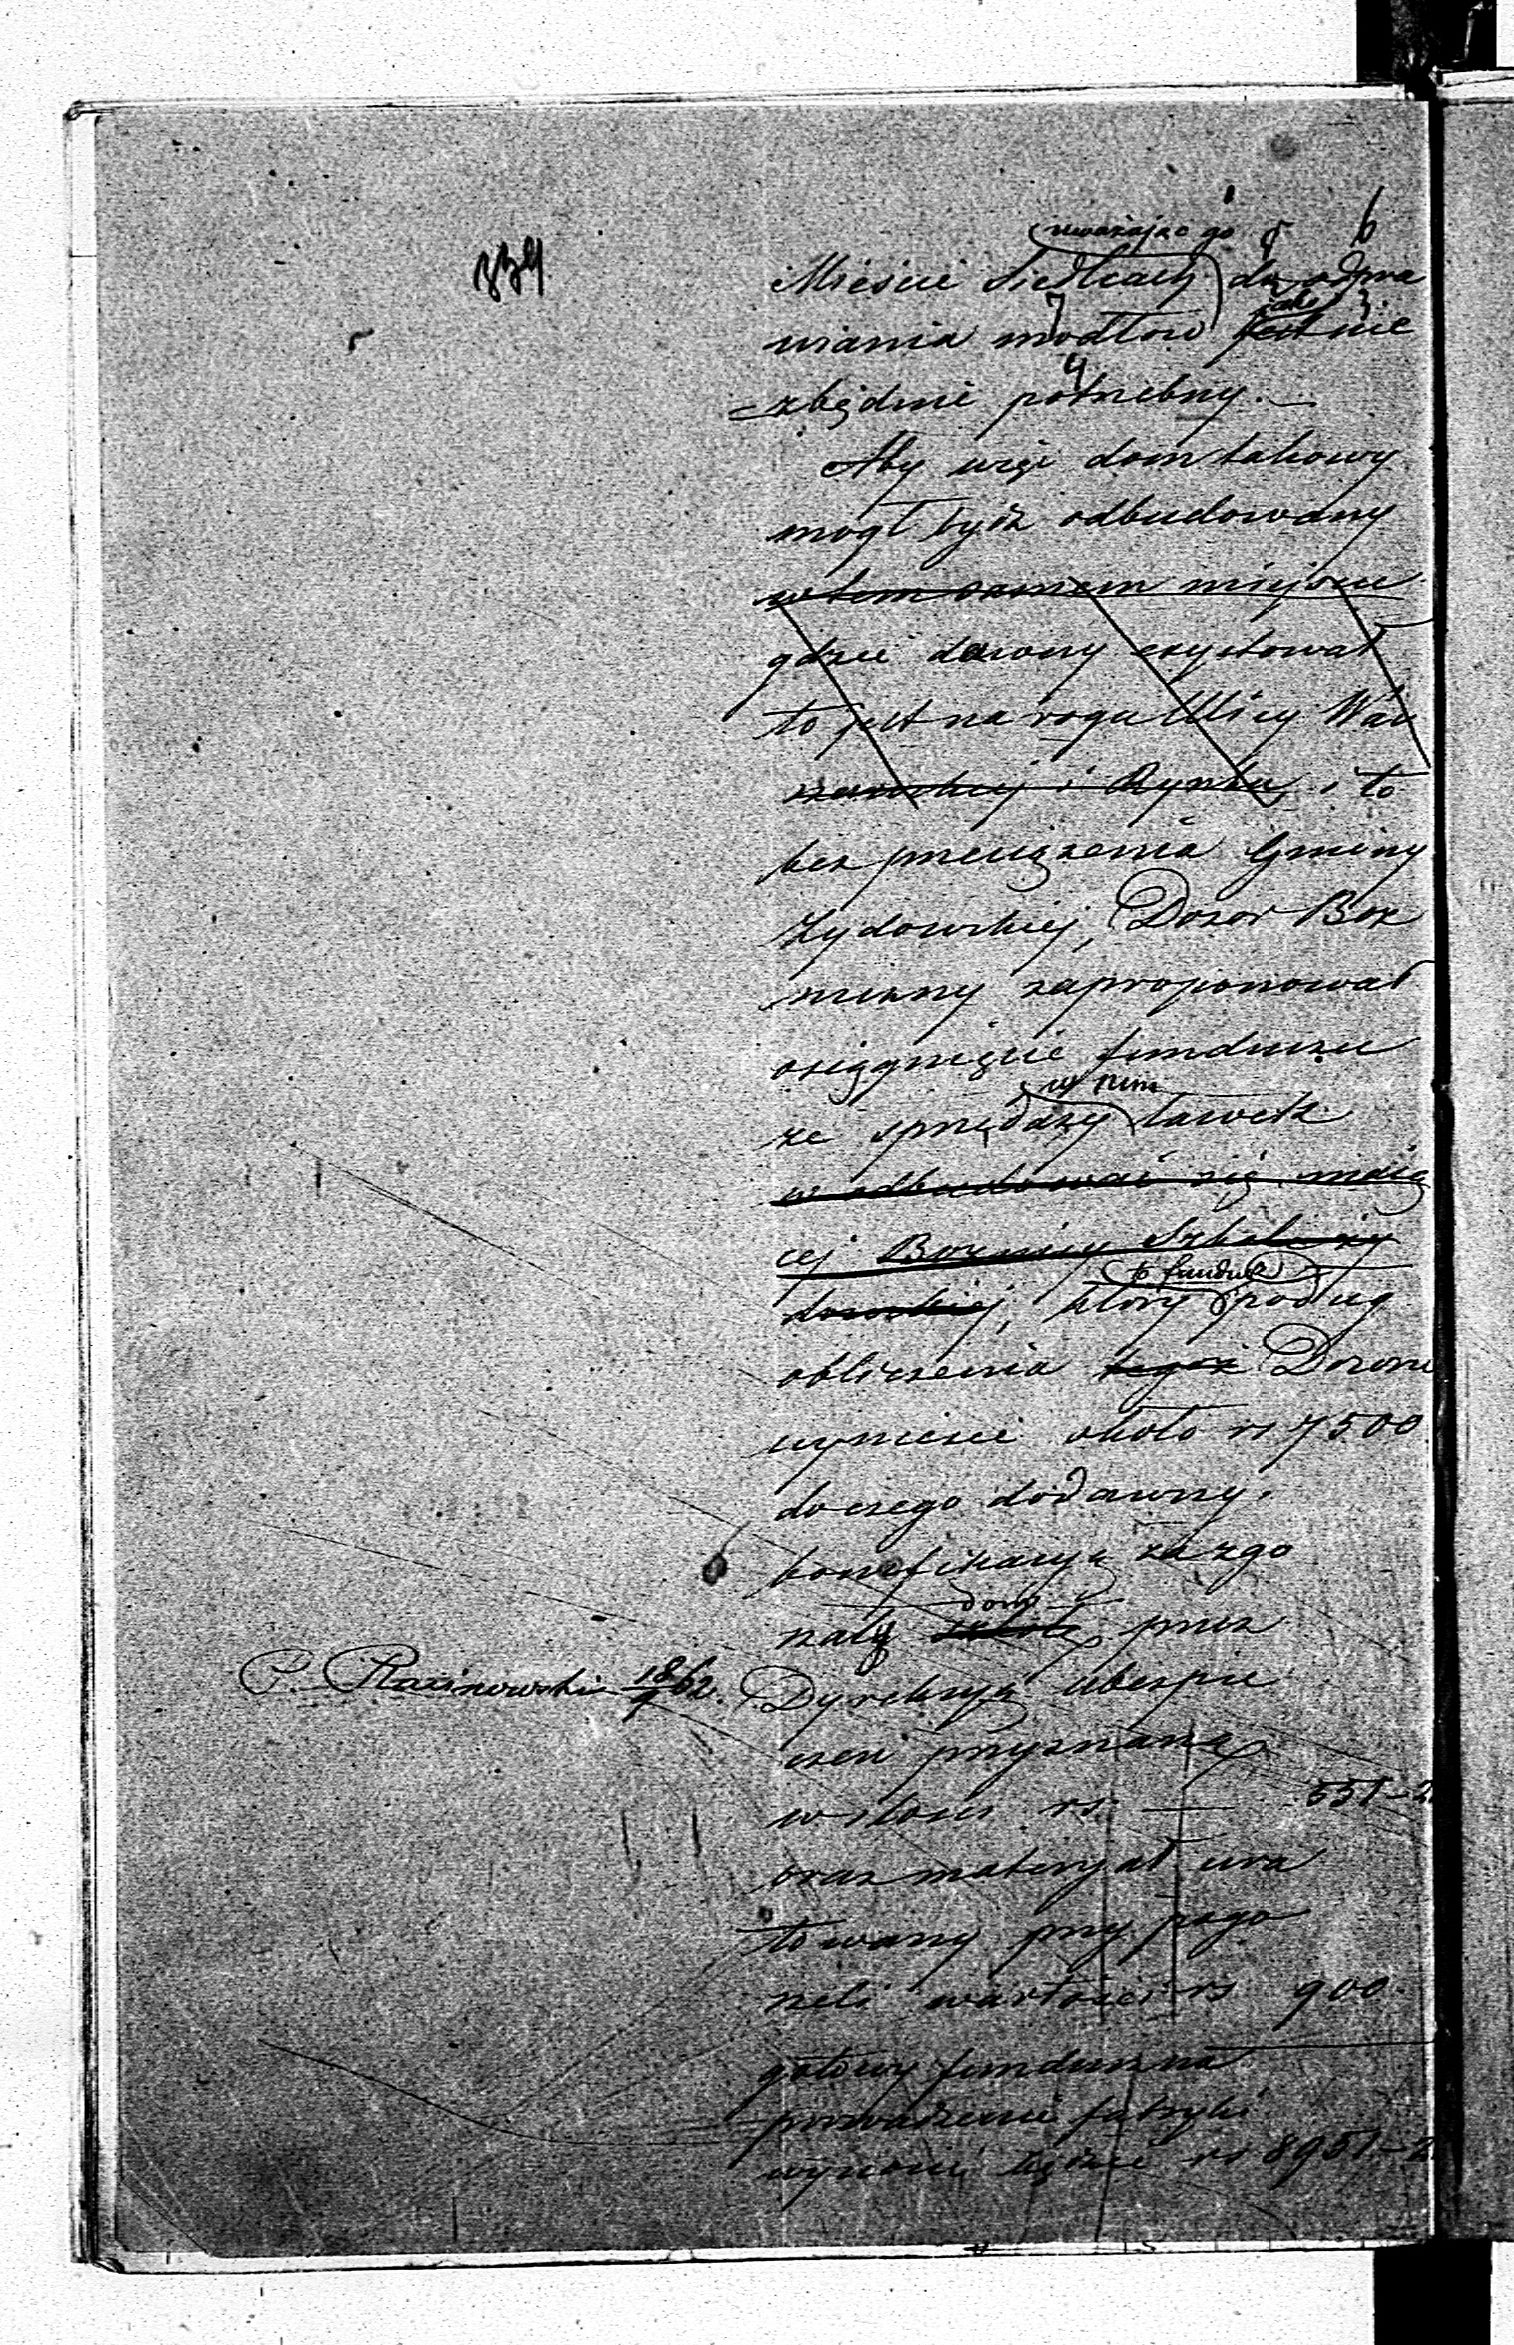 uważając go 6
Mieście Siedlcach do odpra
wiania modłow jest nie
zbędnie potrzebny.
Aby więc dom takowy
mogł bydź odbudowany
w tem samem miejscu
gdzie dawny exystował
to jest na rogu Ulicy War
szawskiej i Rynku, i to
bez przeciążenia Gminy
Żydowskiej, Dozor Boż
niczny zaproponował
osiągnięcie funduszu
w nim
ze sprzedaży ławek
w odbudować się mają
cej Boznicy Szkole Ży
to fundusz
dowskiej, ktory podług
obliczenia tegoż Dozoru
wyniesie około rs 7500
do czego dodawszy
bonifikacyą za zgo
dom
rzałą szkołę przez
P. 1862. Dyrekcyą Ubezpie
czeń przyznaną
w ilości rs — 551-2
oraz materyał ura
towany przy pogo
rzeli wartości rs 900
gotowy fundusz na
prowadzenie fabryki
wynosić będzie rs 8951-2